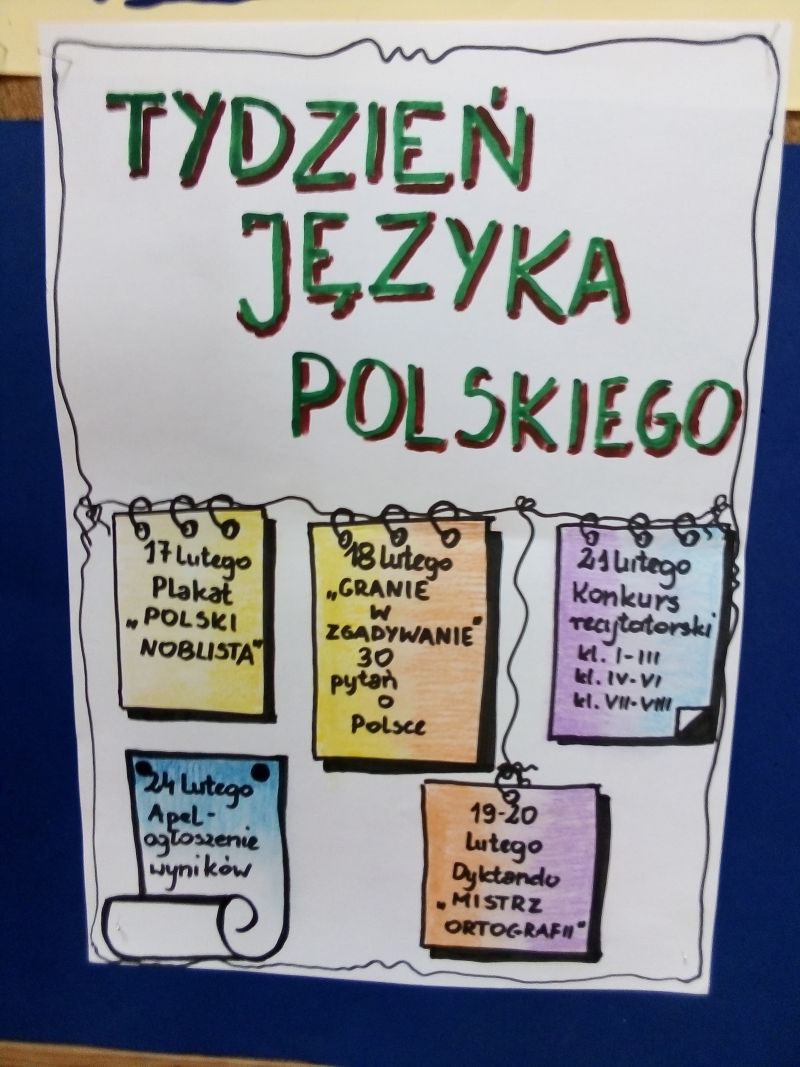 TYDZIEŃ
JĘZYKA
POLSKIEGO
17 Lutego
Plakat
„POLSKI
NOBLISTA"
18 Lutego
„GRANIE
W
ZGADYWANIE"
30
pytań
o
Polsce
21 Lutego
Konkurs
recytatorski
kl. I-III
kl. IV-VI
kl. VII-VIII
24 Lutego
Apel-
ogłoszenie
wyników
19-20
Lutego
Dyktando
„MISTRZ
ORTOGRAFII"